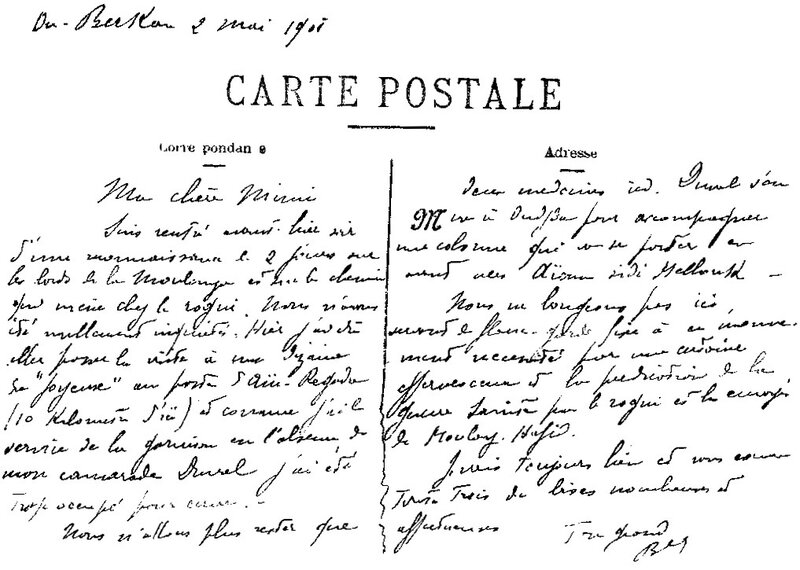 Berkan 2 mai
CARTE POSTALE
Corre pondan e
Adresse
Ma chère Mimi
Suis rentré avant-hier soir
d'une reconnaissance de 2 jours sur
les bords de la Moulouya et sur le chemin
qui mène chez le rogui. Nous n'avons
été nullement inquiétés. Hier j'ai dû
aller passer la visite à une dizaine
de "joyeux" au poste d'Aïn-Regada
(10 kilomètres d'ici) et comme j'ai le
service de la garnison en l'absence de
mon camarade j'ai été
Trop occupé pour
Nous n'allons plus rester que
deux médecins ici. s'en
à Oudjda pour accompagner
une colonne qui va se porter en
avant vers Sidi Mellouk
Nous ne bougeons pas ici
à ce mouve-
ment nécessité par une certaine
effervescence et la prédication de la
guerre Sainte par le rogui et les envoyés
de Mouley-Hafid.
Je vais toujours bien et vous envoie
Toutes Trois de bises nombreuses et
affectueuses
Ton grand